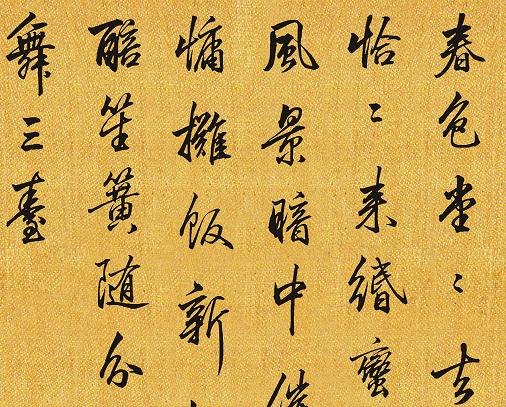 春色堂〻去
恰〻来緡蛮
風景暗中催
慵攤飯新
醅笙簧随分
舞三臺